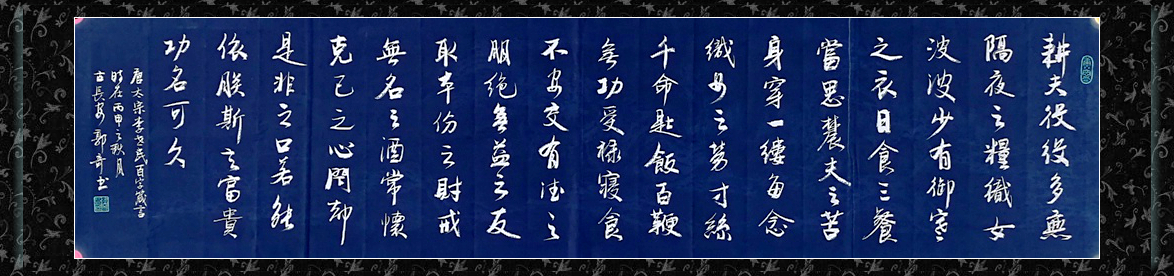 耕夫役役多無
隔夜之糧織女
波波少有御寒
之衣日食三餐
當思農夫之苦
身穿一縷每念
織女之勞寸絲
千命匙飯百鞭
無功受祿寢食
不安交有德之
朋絕無益之友
取本份之財戒
無名之酒常懷
克己之心閉却
是非之口若能
依朕斯言富貴
功名可久
唐太宗李世民百字箴言
時在丙申之秋月
古長安郭奇書